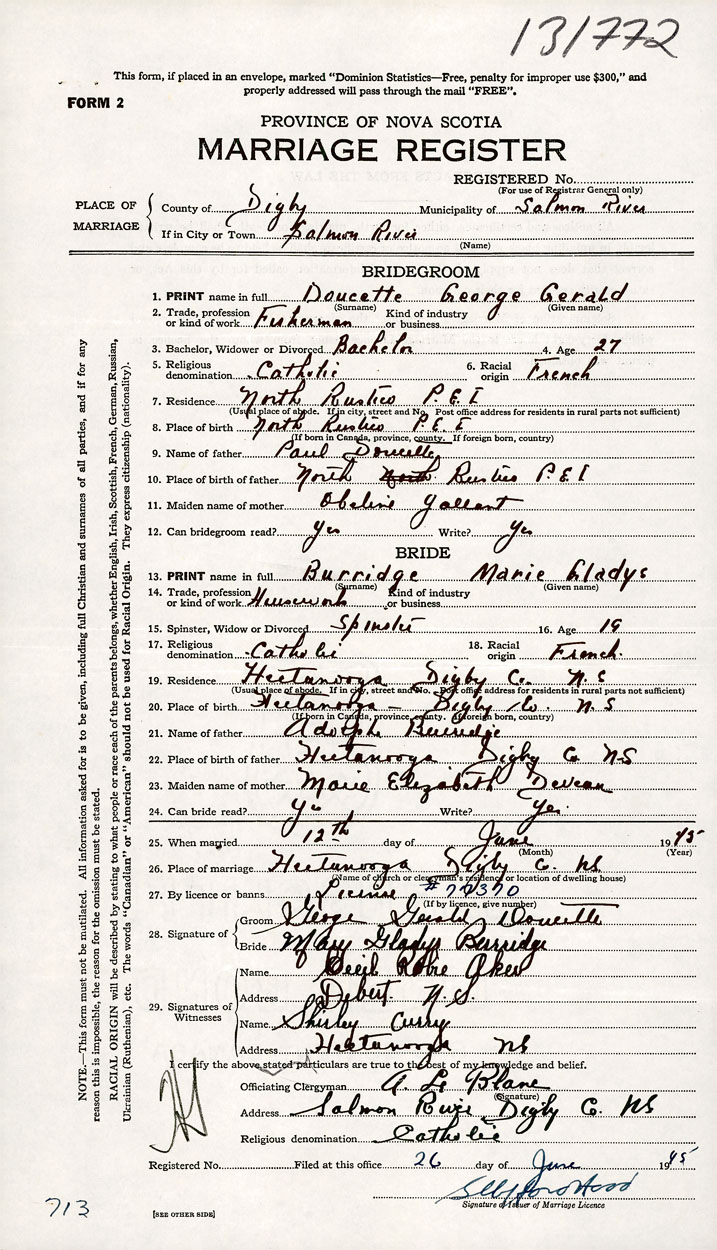 131772
This form, if placed in an envelope, marked “Dominion Statistics—Free, penalty for improper use $300,” and
properly addressed will pass through the mail “FREE”.
FORM 2
PROVINCE OF NOVA SCOTIA
MARRIAGE REGISTER
REGISTERED No.
(For use of Registrar General only)
PLACE OF MARRIAGE
County of Digby Municipality of Salmon River
If in City or Town Salmon River
(Name)
BRIDEGROOM
1. PRINT name in full Doucette George Gerald
(Surname) (Given name)
2. Trade, profession or kind of work Fisherman Kind of industry or business
3. Bachelor, Widower or Divorced Bachelor 4. Age 27
5. Religious denomination Catholic 6. Racial origin French
7. Residence North Rustico P.E.I
(Usual place of abode. If in city, street and No. Post office address for residents in rural parts not sufficient)
8. Place of birth North Rustico P.E.I
(If born in Canada, province, county. If foreign born, country)
9. Name of father Paul Doucette
10. Place of birth of father North North Rustico P.E.I
11. Maiden name of mother Obeline Gallant
12. Can bridegroom read? Yes Write? Yes
BRIDE
13. PRINT name in full Burridge Marie Gladys
(Surname) (Given name)
14. Trade, profession or kind of work Housework Kind of industry or business
15. Spinster, Widow or Divorced Spinster 16. Age 19
17. Religious denomination Catholic 18. Racial origin French.
19. Residence Hectanooga Digby Co. N.S
(Usual place of abode. If in city, street and No. Post office address for residents in rural parts not sufficient)
20. Place of birth Hectanooga – Digby Co. N.S
(If born in Canada, province, county. If foreign born, country)
21. Name of father Adolphe Burridge
22. Place of birth of father Hectanooga Digby Co NS
23. Maiden name of mother Marie Elizabeth Deveau
24. Can bride read? Yes Write? Yes.
25. When married 12th day of June 1945
(Month) (Year)
26. Place of marriage Hectanooga Digby Co. NS
(Name of church or clergyman's residence or location of dwelling house)
27. By licence or banns License #70370
(If by licence, give number)
28. Signature of
Groom George Gerald Doucette
Bride Mary Gladys Burridge
29. Signatures of Witnesses
Name Cecil Aker
Address Debert N.S.
Name Shirley Curry
Address Hectanooga NS
I certify the above stated particulars are true to the best of my knowledge and belief.
Officiating Clergyman A. Le Blanc
(Signature)
Address Salmon River Digby Co. NS
Religious denomination Catholic
Registered No. Filed at this office 26 day of June 1945
Signature of Issuer of Marriage Licence
713
[SEE OTHER SIDE]
NOTE.—This form must not be mutilated. All information asked for is to be given, including full Christian and surnames of all parties, and if for any
reason this is impossible, the reason for the omission must be stated.
RACIAL ORIGIN will be described by stating to what people or race each of the parents belongs, whether English, Irish, Scottish, French, German, Russian,
Ukrainian (Ruthenian), etc. The words “Canadian” or “American” should not be used for Racial Origin. They express citizenship (nationality).